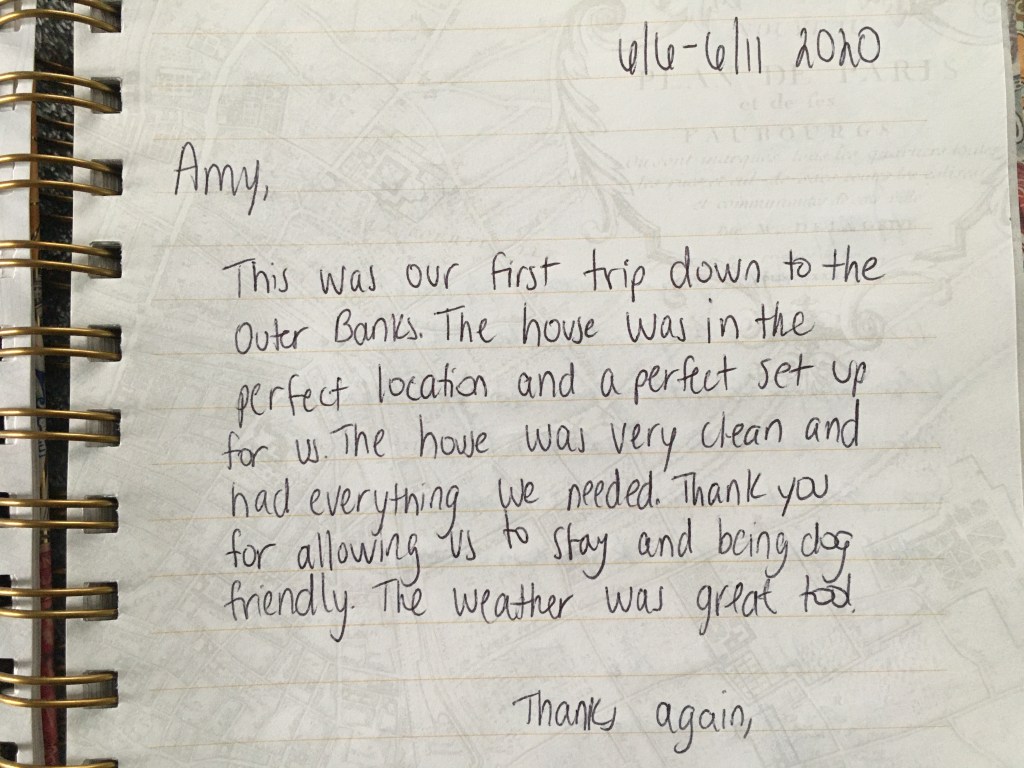 6/6-6/11 2020
PLAN DE PARIS
et de ses
FAUBOURGS
Amy,
This was our first trip down to the
Outer Banks. The house was in the
perfect location and a perfect set up
for us. The house was very clean and
had everything we needed. Thank you
for allowing us to stay and being dog
friendly. The weather was great too!
Thanks again,